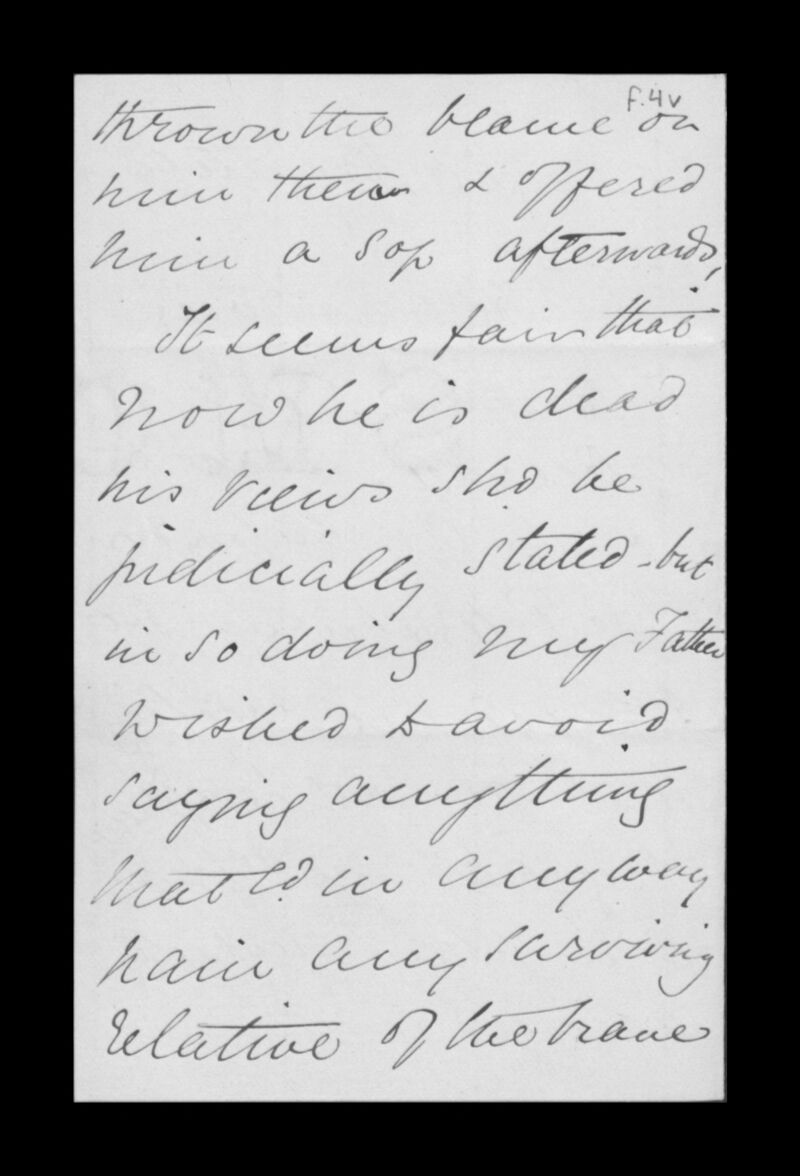 f.4v
thrown the blame on
him then & offered
him a sop afterwards,
It seems fair that
now he is dead
his views shd be
judicially stated - but
in so doing my Father
wished to avoid
saying anything
that cd in any way
pain any surviving
relative of the brave